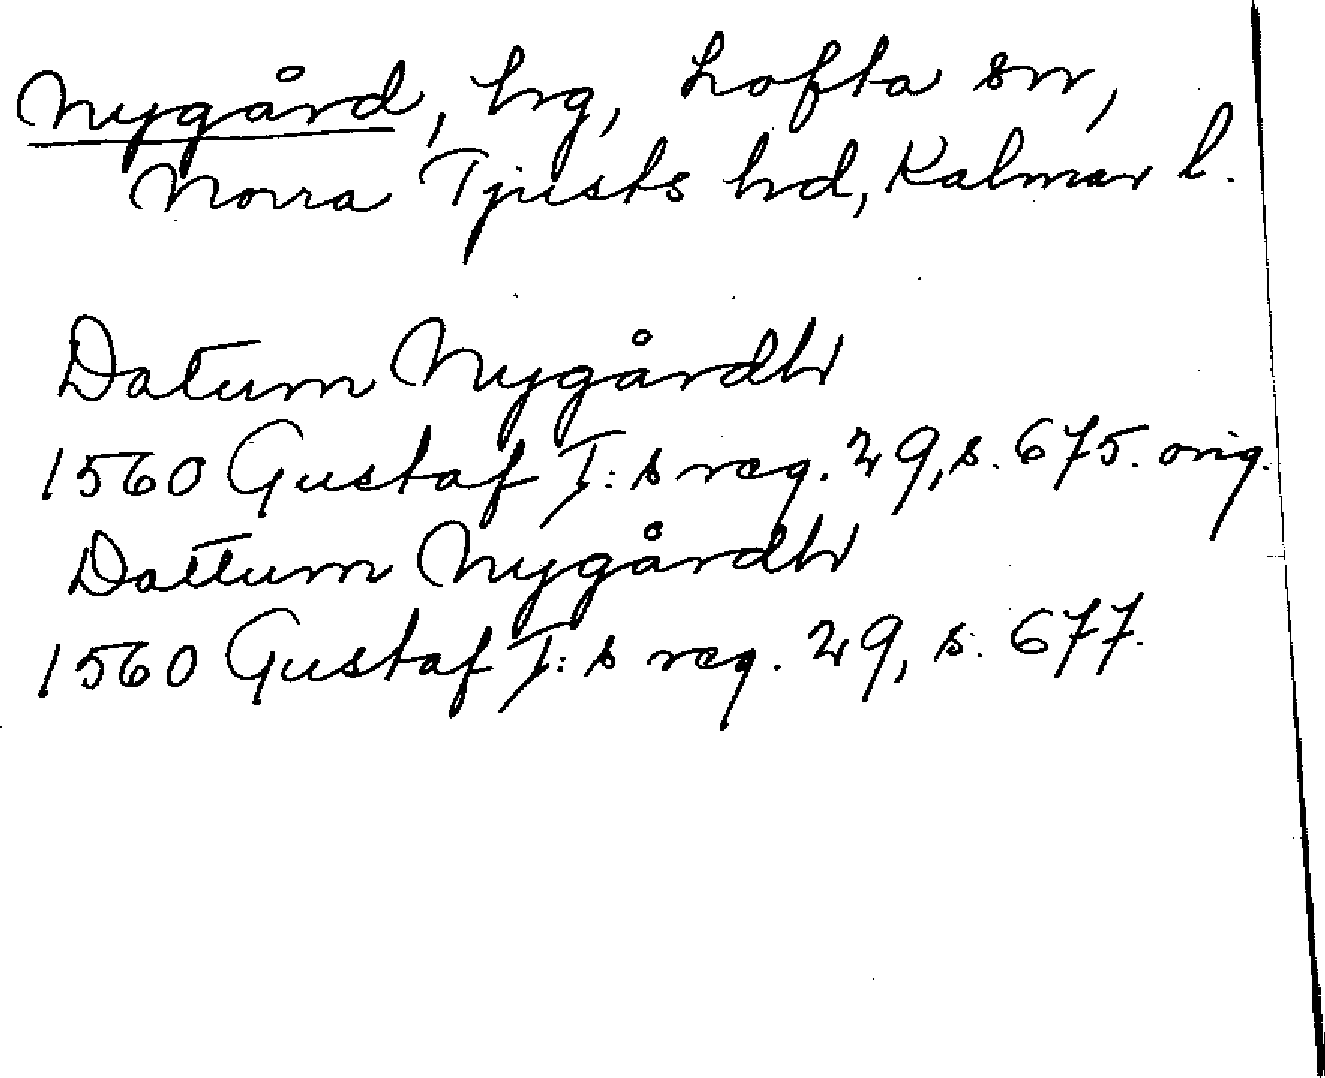 Nygård, hg, Lofta sn,
Norra Tjusts hd, Kalmar l.
Datum Nygårdh
1560 Gustaf I:s reg. 29, s. 675. orig.
Dattum Nygårdh
1560 Gustaf I:s reg. 29, s. 677.